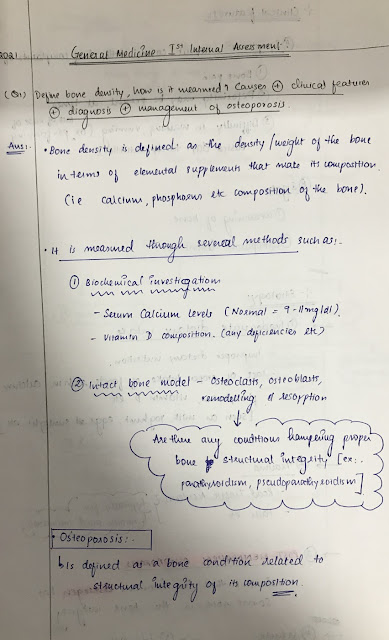 2021
General Medicine Ist Internal Assessment:
(Q1) Define bone density, how is it measured? Causes ⊕ clinical features
⊕ diagnosis ⊕ management of osteoporosis.
Ans:. • Bone density is defined as the density/weight of the bone
in terms of elemental supplements that make its composition
(ie calcium, phosphorus etc composition of the bone).
• It is measured through several methods such as:.
① Biochemical investigations
- Serum Calcium levels (Normal = 9-11mg/dl).
- Vitamin D composition. (any deficiencies etc)
② Intact bone model - Osteoclasts, osteoblasts,
remodelling & resorption
↓
Are there any conditions hampering proper
bone structural integrity [ex:.
parathyroidism, pseudoparathyroidism]
• Osteoporosis:.
↳ is defined as a bone condition related to
structural integrity of its composition.